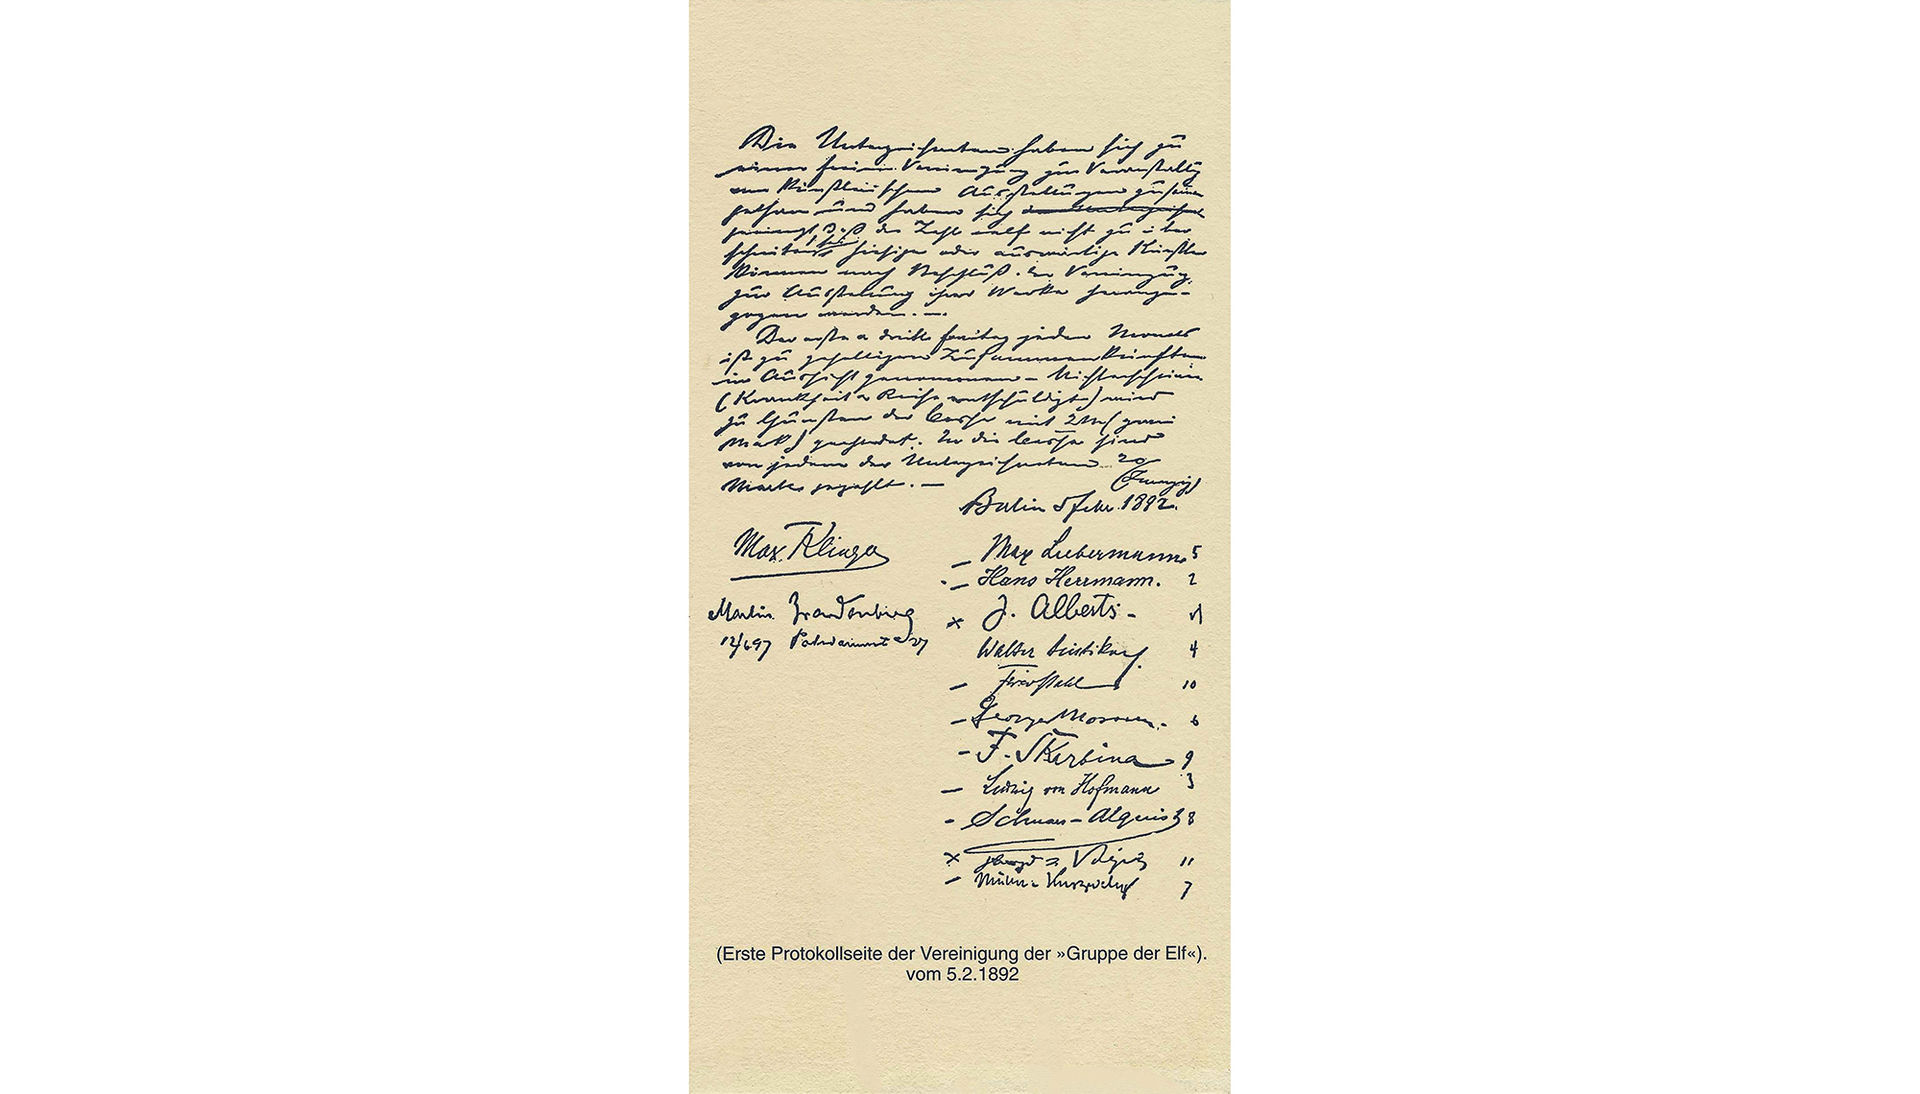 Die Unterzeichneten haben sich zu
einer freien Vereinigung zur Veranstaltg
von künstlerischen Ausstellungen zusammen
gethan und haben sich
geeinigt, daß die Zahl elf nicht zu über
schreiten hiesige oder auswärtige Künstler
können nach Beschluß der Vereinigung
zur Ausstellung ihrer Werke herange-
zogen werden. —
Der erste u dritte Freitag jeden Monats
ist zu geselligen Zusammenkünften
in Aussicht genommen – Nichterscheinen
(Krankheit u Reise entschuldigt) wird
zu Gunsten der Casse mit 2M (zwei
Mark) geahndet. In die Casse sind
von jedem der Unterzeichneten 20
(Zwanzig)
Mark gezahlt. —
Berlin 5 Febr. 1892.
Max Klinger
Martin Brandenburg
12/6 97
Max Liebermann 5
Hans Herrmann. 2
J. Alberts - 1
Walter Leistikow 4
10
George Mosson. 6
F. Skarbina 9
Ludwig von Hofmann 3
Schnars-Alquist 8
11
Müller Kurzwelly 7
(Erste Protokollseite der Vereinigung der »Gruppe der Elf«).
vom 5.2.1892